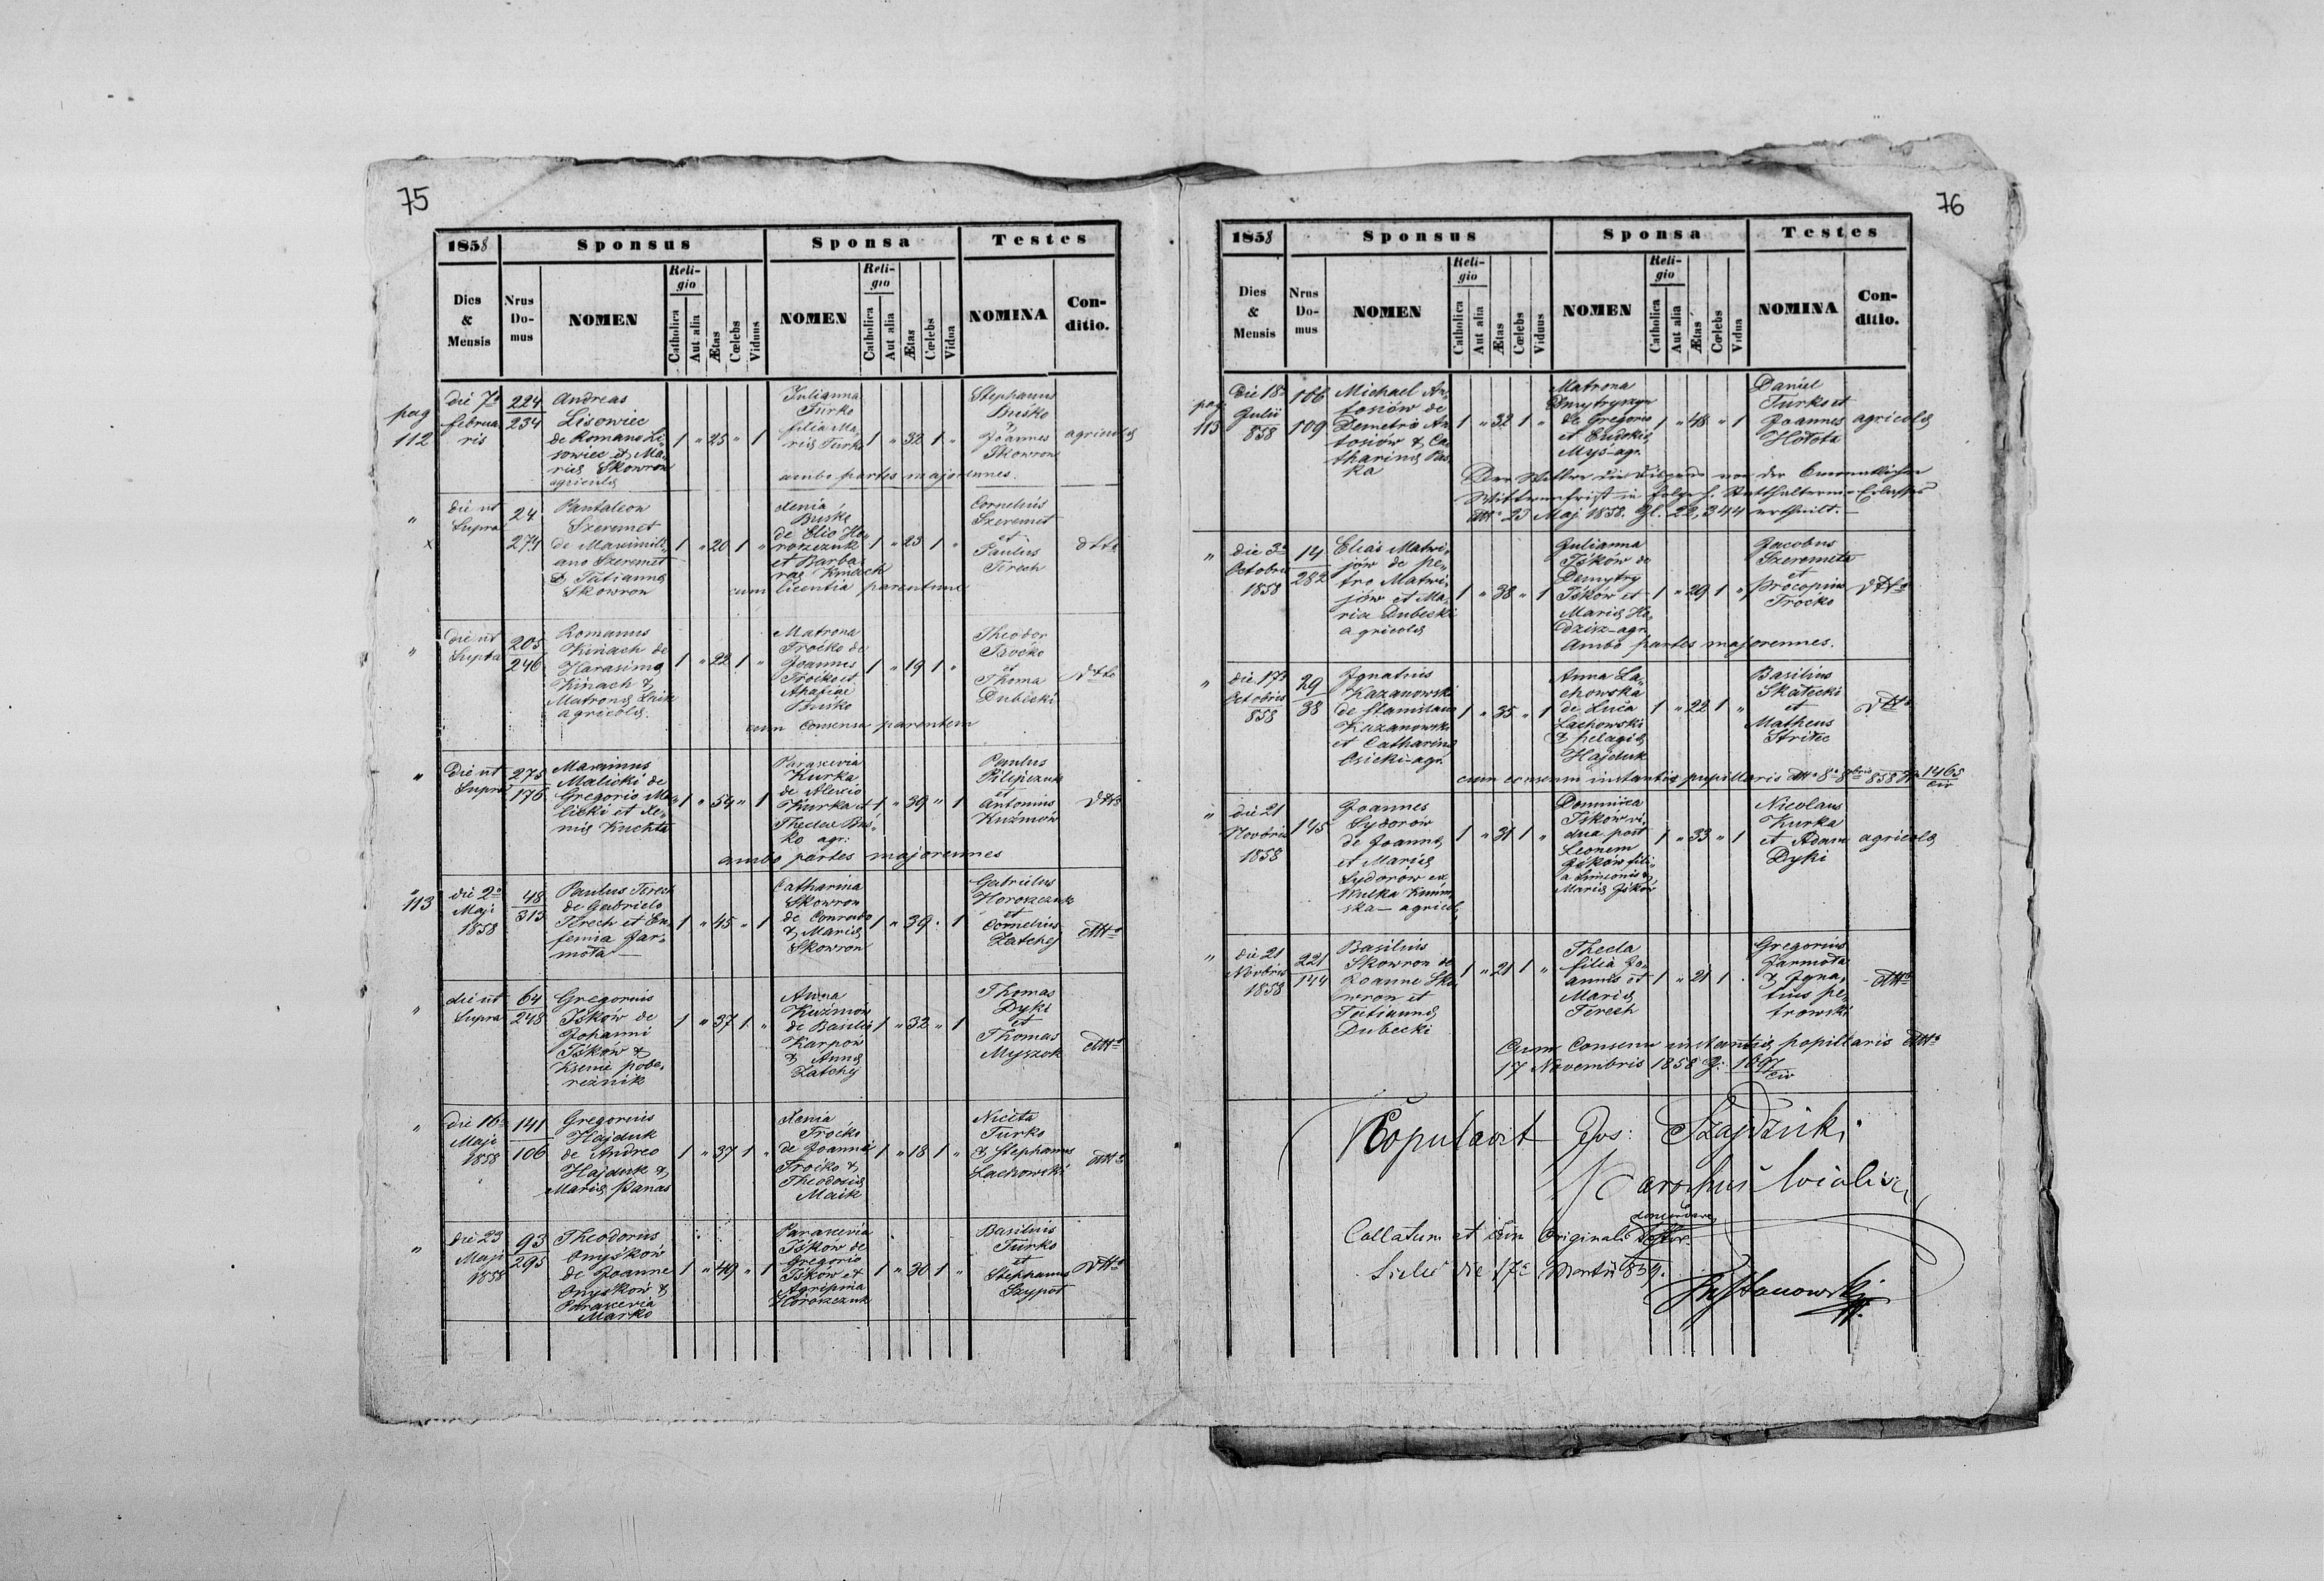 75
1858
Sponsus
Sponsa
Testes
Dies & Mensis
Nrus Domus
NOMEN
Religio
Catholica
Aut alia
Ætas
Cœlebs
Viduus
NOMEN
Religio
Catholica
Aut alia
Ætas
Cœlebs
Vidua
NOMINA
Conditio.
pag 112
die 7a
februa
ris
224
234
Andreas
Lisowiec
de Romano Li-
sowiec et Ma-
ria Skowron
agricola
1 " 25 " 1
Julianna
Turko
filia Ma-
ria Turko
1 " 32 1 "
Stephanus
Buśko
&
Joannes
Skowron
agricola
ambo partes majorennes.
"
x
die ut
Supra
24
274
Pantaleon
Szeremet
de Maximili-
ano Szeremet
& Tatianna
Skowron
1 " 20 1 "
Xenia
Buśko
de Elio Ho-
roszczuk
et Barba-
ra Kinach
1 " 23 1 "
Cornelius
Szeremet
et
Paulus
Terech
dtto
cum licentia parentum
"
die ut
Supra
205
246
Romanus
Kinach de
Harasimo
Kinach &
Matrona
agricola.
1 " 22 1 "
Matrona
Troćko de
Joannes
Troćko et
Ahafiae
Busko
1 " 19 1 "
Theodor
Troćko
et
Thoma
Dubecki
dtto
cum consensu parentem
"
Die ut
Supra
275
176
Maximus
Malicki de
Gregorio Ma-
licki et Xe-
nia Kuchta
1 " 54 " 1
Paraxevia
Kurka
de Alexio
Kurka et
Theclae Buś-
ko agr:
1 " 39 " 1
Paulus
Pilejczuk
et
Antonius
Kuźmow
dtto
ambo partes majorennes
"
113
die 2a
Maji
1858
48
313
Paulus Terech
de Gabrielo
Terech et Eu-
femia Jar-
mota
1 " 45 " 1
Catharina
Skowron
de Conrado
& Maria
Skowron
1 " 39 " 1
Gabrielus
Horoszczuk
et
Cornelius
Zatchej
dtto
"
die ut
Supra
64
248
Gregorius
Iśków de
Johanni
Iśków &
Ksenie pobe-
reźnik
1 " 37 1 "
Anna
Kuźmión
de Basilio
Karpow
& Anna
Zatchy
1 " 32 " 1
Thomas
Dyki
et
Thomas
Myszok
dtto
"
die 16a
Maji
1858
141
106
Gregorius
Hajduk
de Andreo
Hajduk &
Maria Panas
1 " 37 1 "
Xenia
Troćko
de Joanna
Troćko &
Theodosia
Maik
1 " 18 1 "
Niceta
Turko
& Stephanus
Lachowski
dtto
"
die 23
Maji
1858
93
295
Theodorus
Onyśków
de Joanne
Onyśków &
Paraxevia
Marko
1 " 49 " 1
Paraxevia
Iśków de
Gregorio
Iśków et
Agripina
Horoszczuk
1 " 30 1 "
Basilius
Turko
et
Stephanus
Szypot
dtto
76
1858
Sponsus
Sponsa
Testes
Dies & Mensis
Nrus Domus
NOMEN
Religio
Catholica
Aut alia
Ætas
Cœlebs
Viduus
NOMEN
Religio
Catholica
Aut alia
Ætas
Cœlebs
Vidua
NOMINA
Conditio.
pag
113
Die 18a
Julii
858
166
109
Michael An-
tosiów de
Demetrio An-
tosiów & Ca-
tharina Pas-
ka
1 " 32 1 "
Matrona
Dmytryszyn
de Gregorio
et Eudokia
Mys-agr.
1 " 48 " 1
Daniel
Turko et
Joannes
Hołota
agricola
Der Wittwe die Dispens von der
Wittwenfrist in Folge h. Statthalterei-Erlasses
dtto 23 Maj 1858. Zl. 22,344 ertheilt.
"
die 3a
Octobris
1858
14
282
Elias Matwi-
jów de pe-
tro Matwi-
jów et Ma-
ria Dubecki
agricola
1 " 38 " 1
Julianna
Iśków de
Demytry
Iśków et
Maria Ho-
dzik-agr.
1 " 29 1 "
Jacobus
Szeremeta
et
Procopius
Troćko
dtto
Ambo partes majorennes.
"
die 17a
Octobris
858
29
38
Ignatius
Kazanowski
de Stanislao
Kazanowski
et Catharina
Csicki-agr.
1 " 35 " 1
Anna La-
chowska
de Luca
Lachowski
& pelagia
Hajduk
1 " 22 1 "
Basilius
Skałecki
et
Matheus
Stritec
dtto
cum consensu instantia pupillaris dtto 8a 8bris 858 1465
civ
"
die 21
Novbris
1858
145
Joannes
Sydorów
de Joanna
et Maria
Sydorow ex
Wulka Kunin-
ska- agricol.
1 " 31 1 "
Dominica
Iśków vi-
dua post
Leonem
Iśków fili-
a Simionis &
Maria Iśków
1 " 33 " 1
Nicolaus
Kurka
et Adam
Dyki
agricola
"
die 21
Novbris
1858
221
144
Basilius
Skowron de
Joanne Sko-
wron et
Tatianna
Dubecki
1 " 21 1 "
Thecla
filia Jo-
annis et
Maria
Terech
1 " 21 1 "
Gregorius
Jarmota
& Igna-
tius pe-
trowski
dtto
Cum Consensu instantia pupillaris dtto
17 Novembris 1858 Z: 1697
civ
Copulavit Jos: Szajdzicki
Parochus localis
Collatum et cum Originali concordare
die 17a Martii 859.